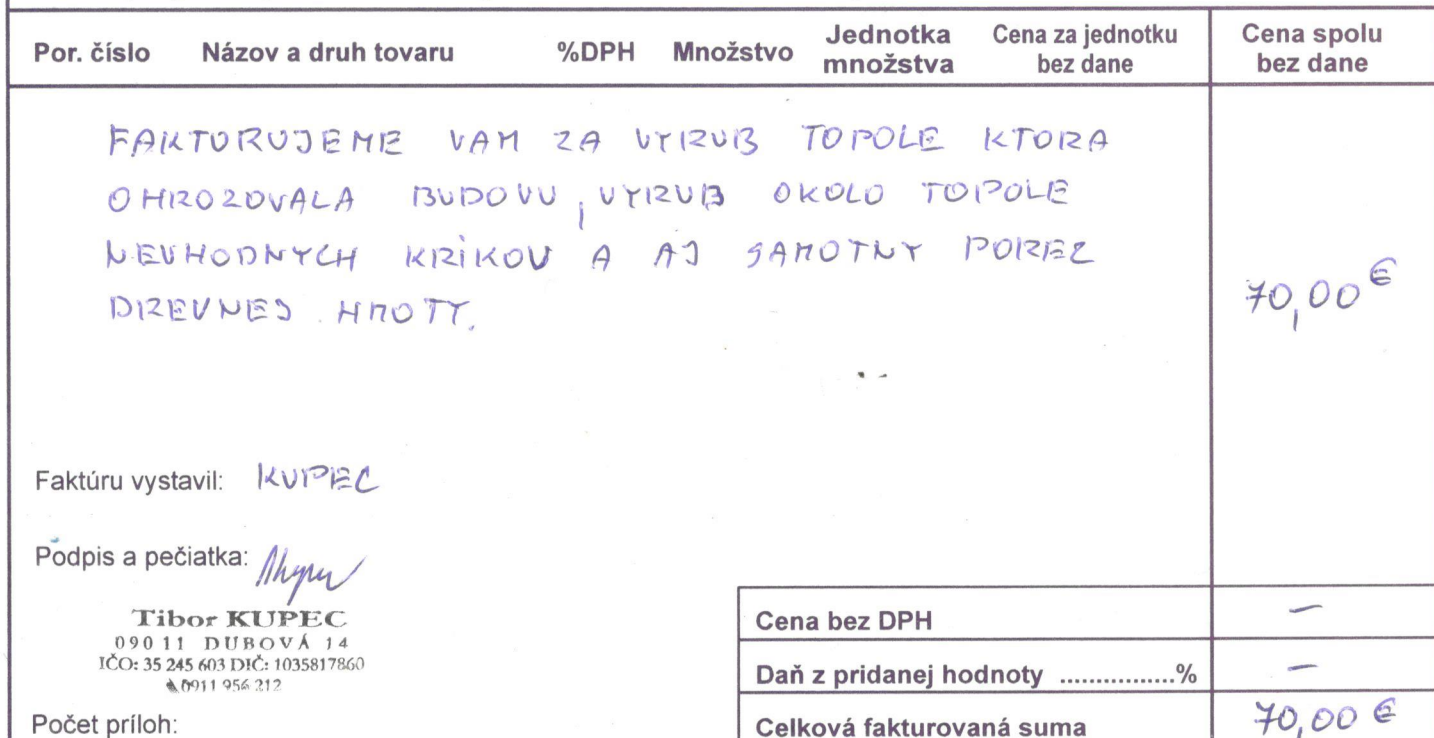 Por. číslo Názov a druh tovaru %DPH Množstvo Jednotka množstva Cena za jednotku bez dane Cena spolu bez dane
FAKTURUJEME VAM ZA VYRUB TOPOLE KTORA
OHROZOVALA BUDOVU, VYRUB OKOLO TOPOLE
NEVHODNYCH KRÍKOV A AJ SAMOTNY POREZ
DREVNEJ HMOTY.
70,00 €
Faktúru vystavil: KUPEC
Podpis a pečiatka:
Tibor KUPEC
090 11 DUBOVÁ 14
IČO: 35 245 603 DIČ: 1035817860
0911 956 212
Počet príloh:
Cena bez DPH –
Daň z pridanej hodnoty ................% –
Celková fakturovaná suma 70,00 €